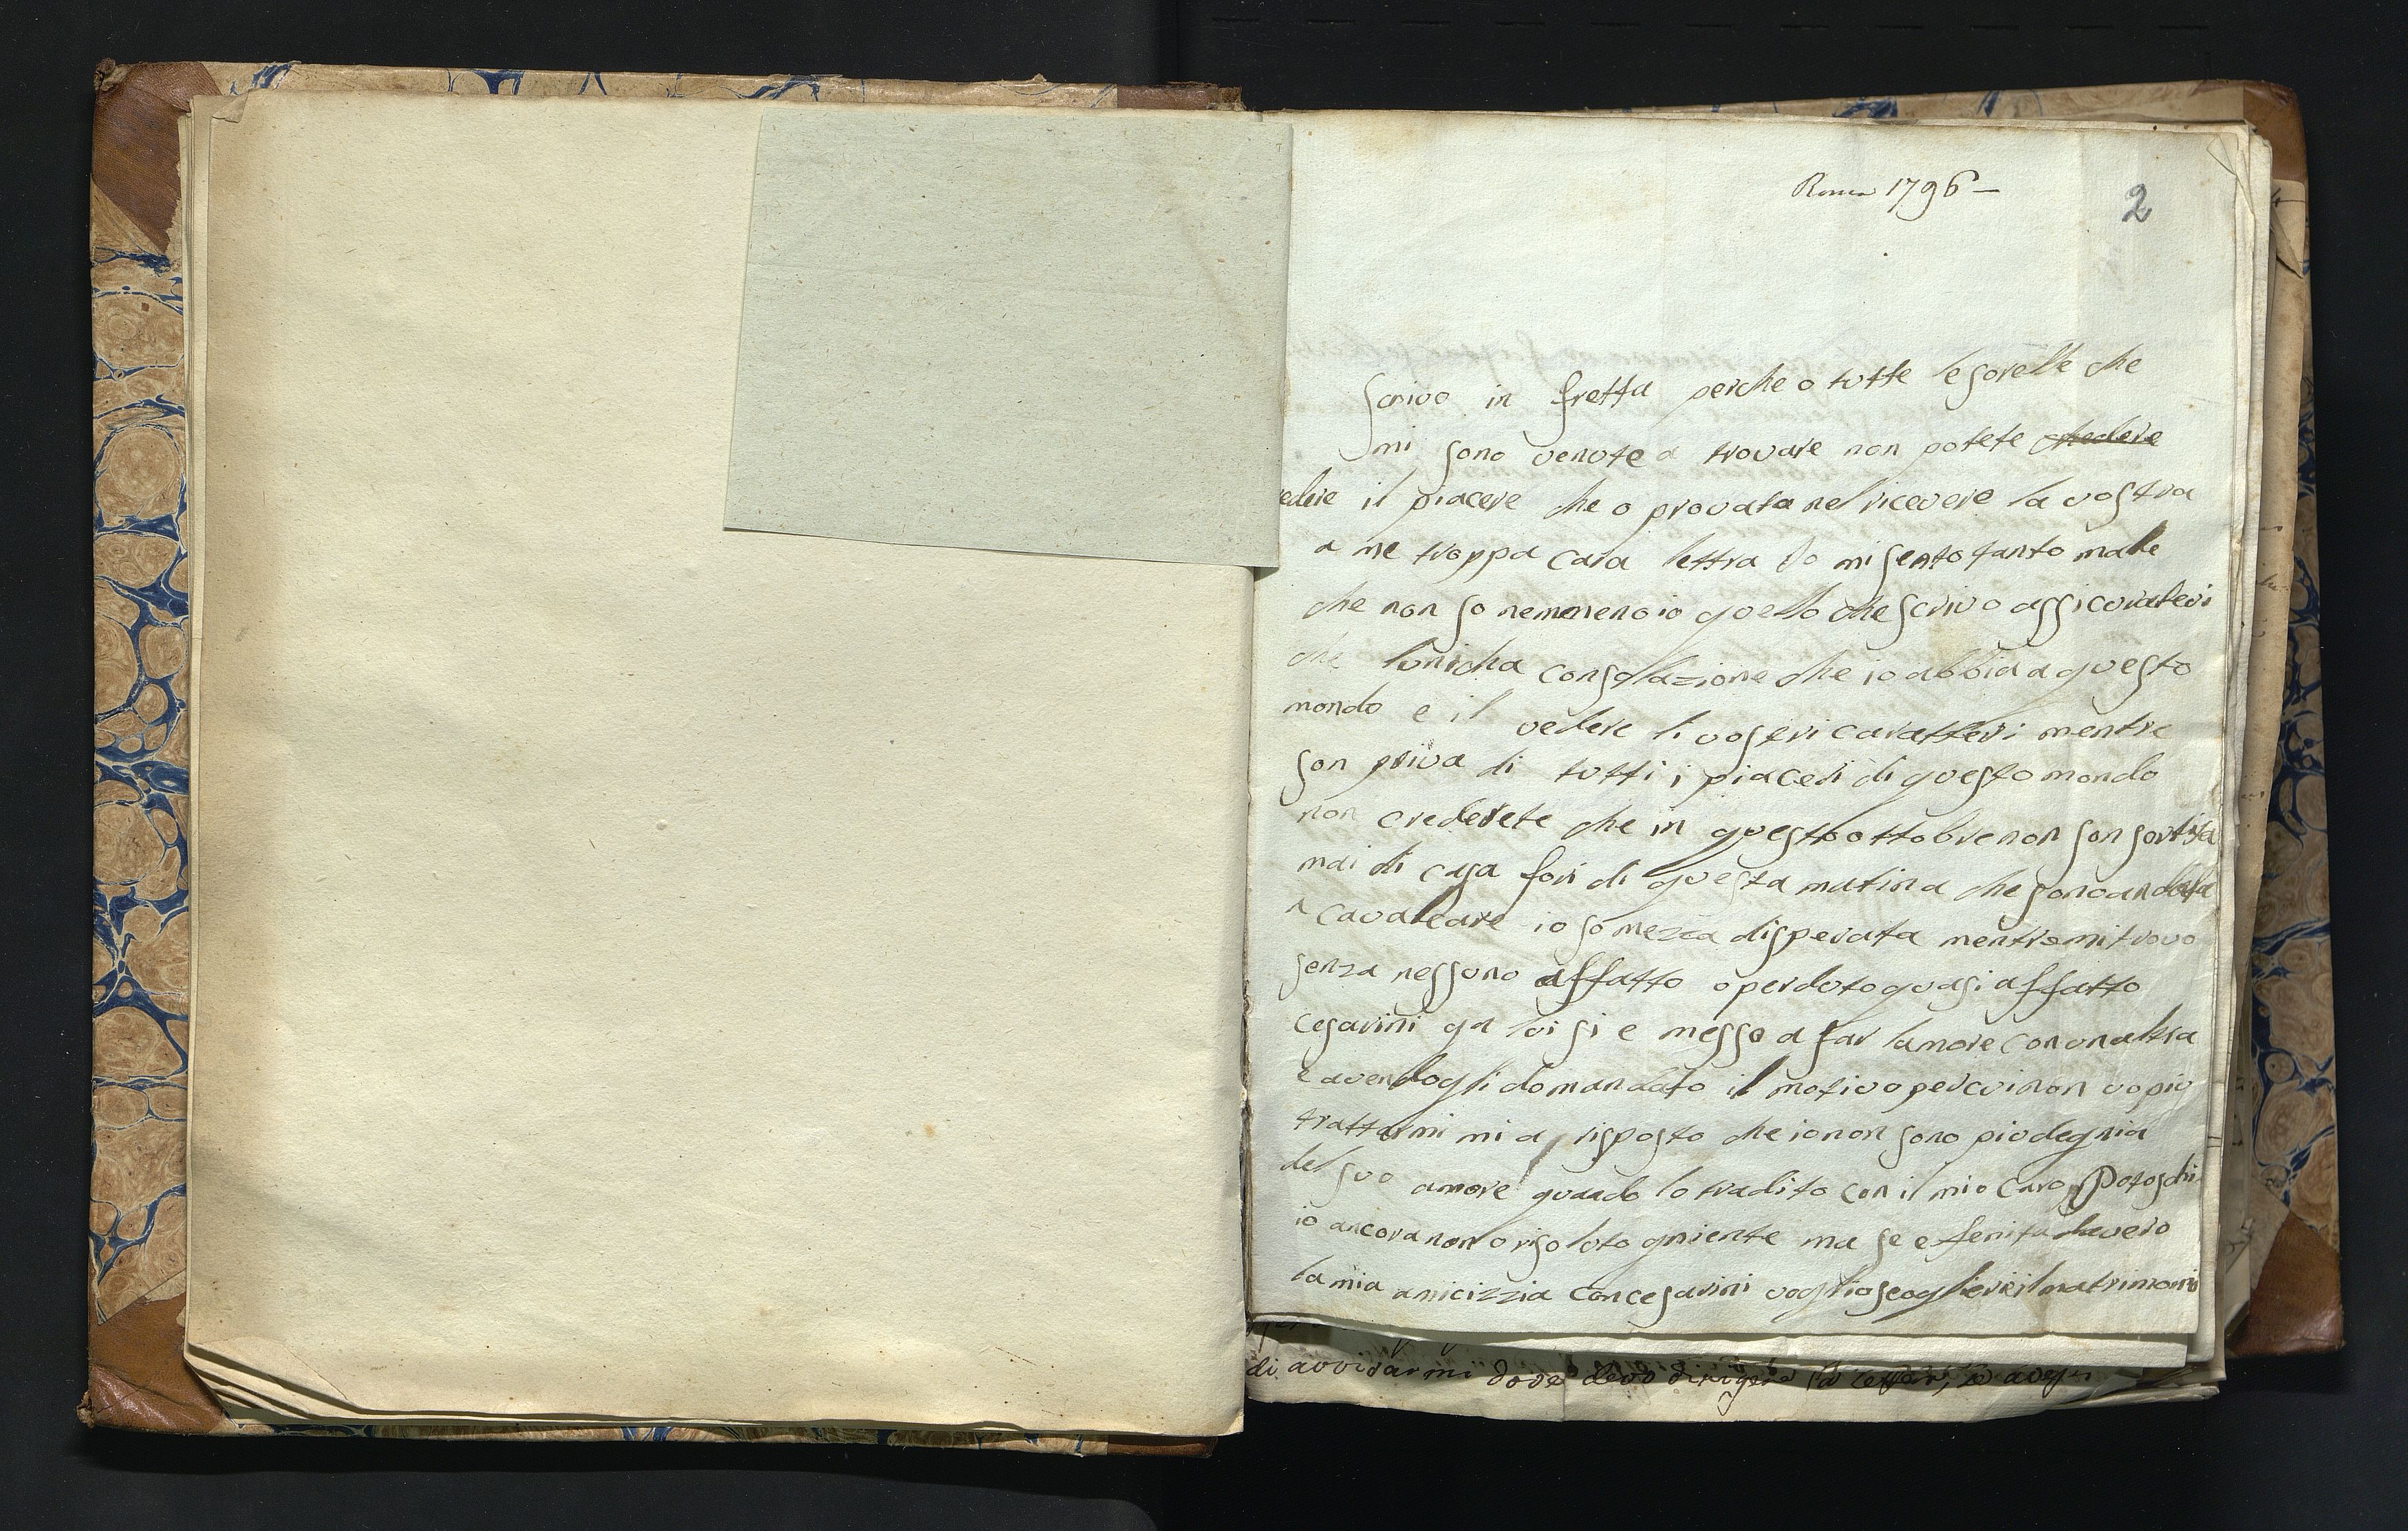 Roma 1796 —
2
Scrivo in fretta perche o tutte le sorelle che
mi sono venute a trovare non potete chedere
edere il piacere che o provata nel ricevere la vostra
a me troppa cara lettra Io mi sento tanto male
che non so nemmeno io quello che scrivo assicuratevi
che lunicha consolazione che io abbia a questo
mondo e il vedere li vostri caratteri mentre
son priva di tutti i piaceri di questo mondo
non crederete che in questo ottobre non son sortita
mai di casa fori di questa matina che sono andata
a cavalcare io so mezza disperata mentre mi trovo
senza nessuno affatto o perduto quasi affatto
cesarini gia lui si e messo a far lamore con unaltra
e avendogli domandato il motivo per cui non vo piu
trattarmi mi a risposto che io non sono piu degnia
del suo amore quando lo tradito con il mio caro Potoschi
io ancora non o risoluto gniente ma se e fenita davero
la mia amicizzia con cesarini voglio scogliere il matrimonio
di avvisarmi dove devo dirigere la